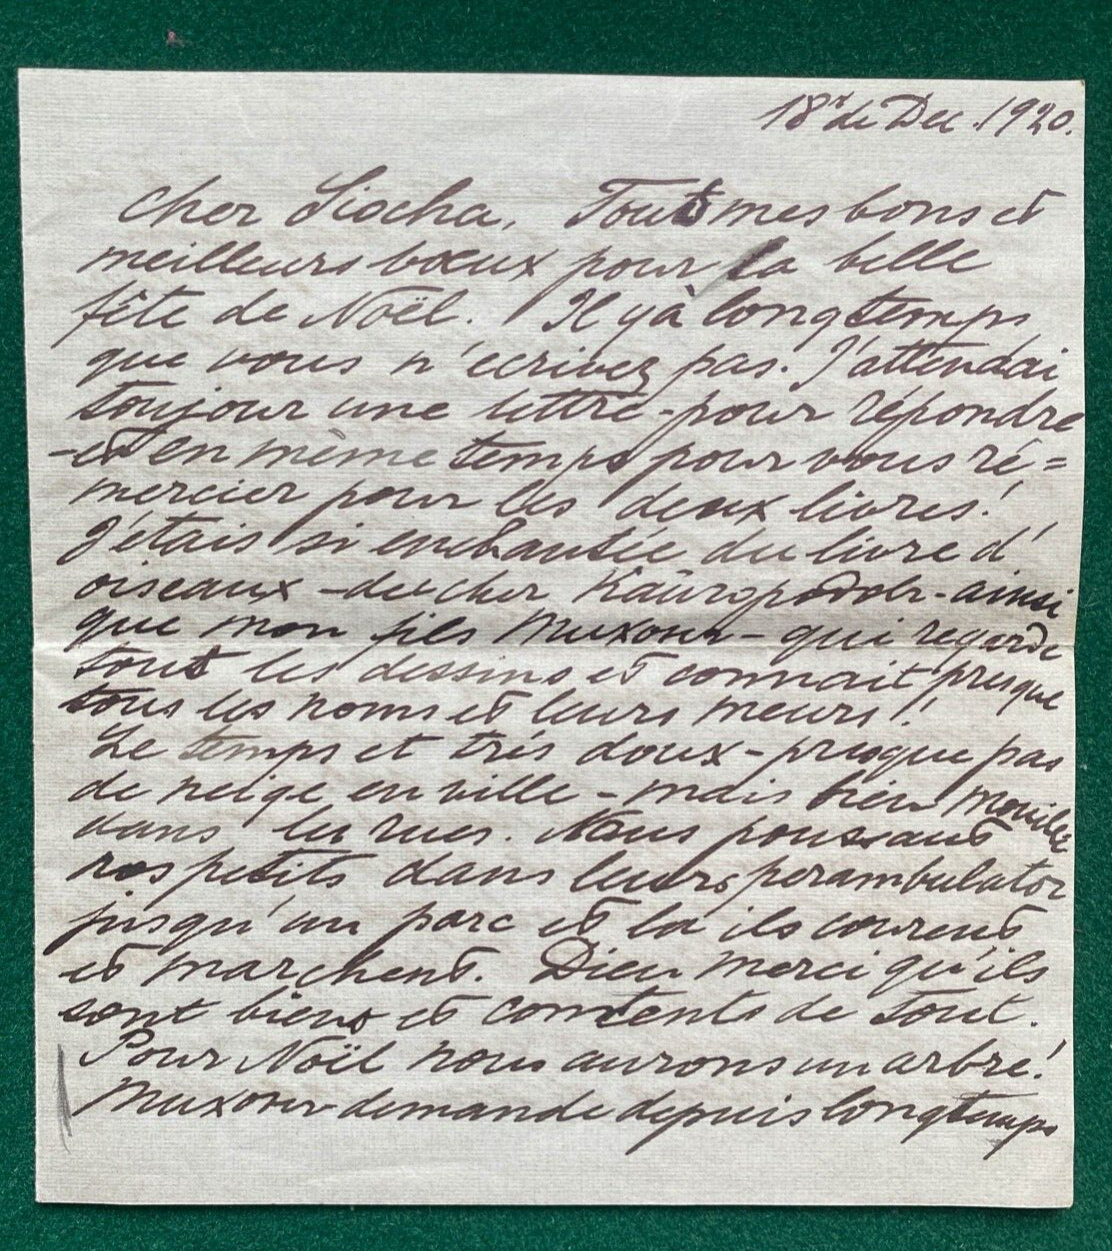 18 de Dec. 1920.
Cher Liocha, Tout mes bons et
meilleurs voeux pour la belle
fête de Noël. Il y à longtemps
que vous n'ecrivez pas. J'attendai
toujour une lettre - pour répondre
- et en même temps pour vous ré=
mercier pour les deux livres!
J'étais si enchantée du livre d'
oiseaux - du cher - ainsi
que mon fils - qui regarde
tout les dessins et connait presque
tous les noms et leurs meurs!
Le temps et très doux - presque pas
de neige en ville - mais bien mouillé
dans les rues. Nous poussant
nos petits dans leurs perambulator
jusqu'au parc et la ils courent
et marchent. Dieu merci qu'ils
sont biens et contents de tout.
Pour Noël nous aurons un arbre!
demande depuis longtemps